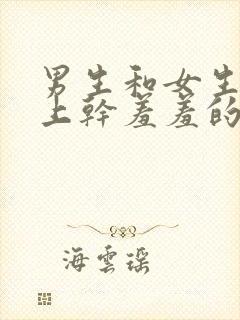 男生和女生
上幹羞羞的
海雲瑶